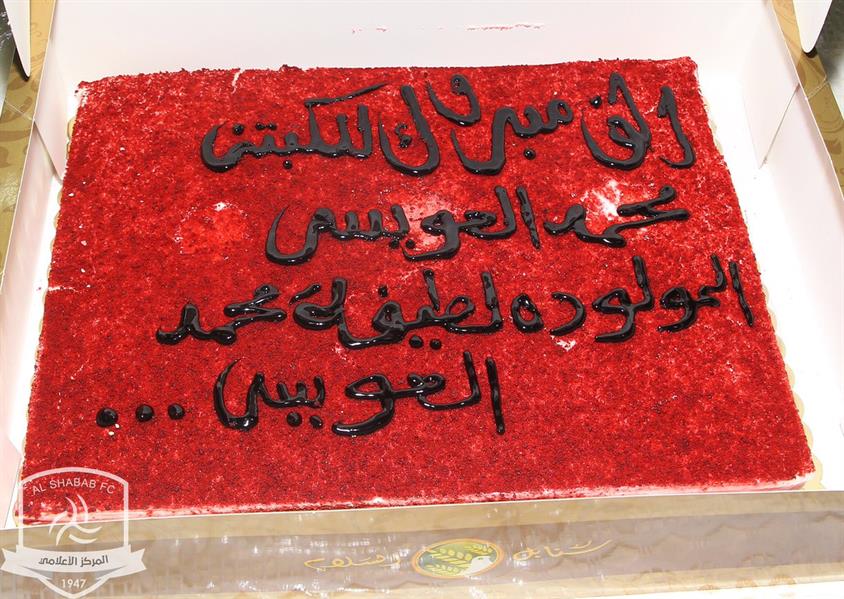 الف مبروك للكبتن
محمد العويس
المولوده لطيفة محمد
العويس ...
AL SHABAB FC
المركز الإعلامي
1947